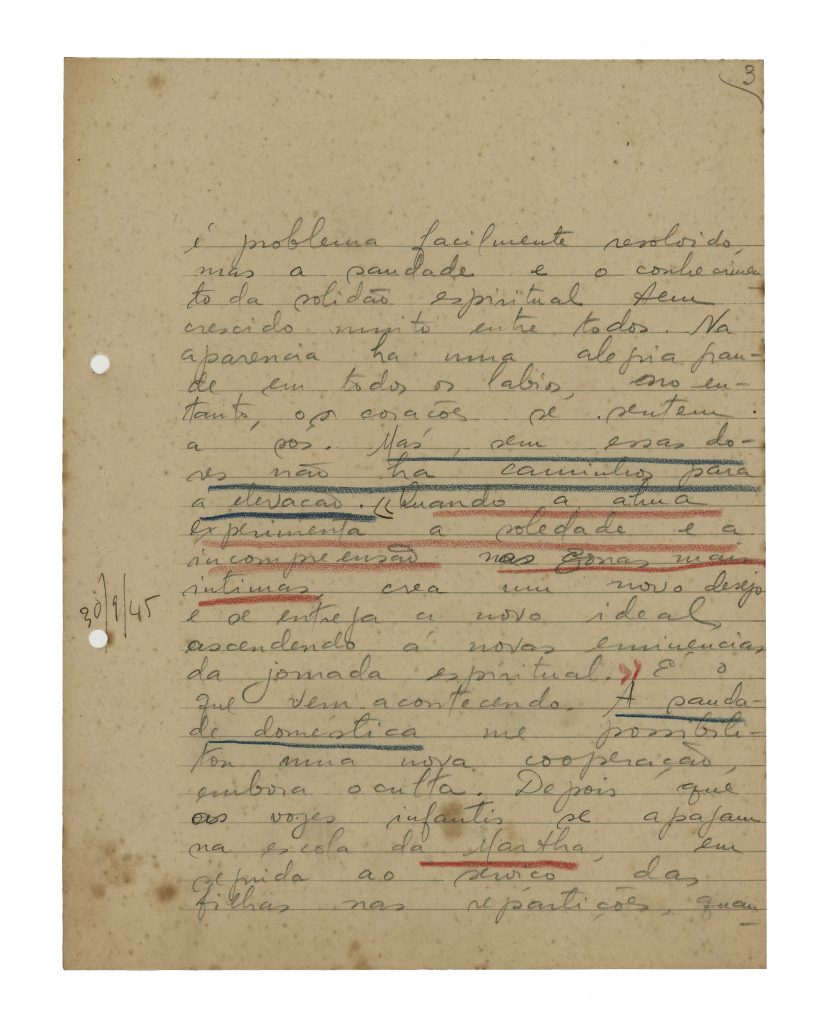 3
é problema facilmente resolvido,
mas a saudade e o conhecimen
to da solidão espiritual tem
crescido muito entre todos. Na
aparencia ha uma alegria gran-
de em todos os labios, no en-
tanto, os corações se sentem
a sós. Mas, sem essas do-
res não ha caminhos para
a elevação. «Quando a alma
experimenta a soledade e a
incompreensão nas zonas mais
intimas, crea um novo desejo
e se entrega a novo ideal,
ascendendo á novas eminencias
da jornada espiritual.» É o
que vem acontecendo. A sauda-
de doméstica me possibili-
tou uma nova cooperação,
embora oculta. Depois que
as vozes infantis se apagam
na escola da Martha, em
seguida ao serviço das
filhas nas repartições, quan-
30/9/45